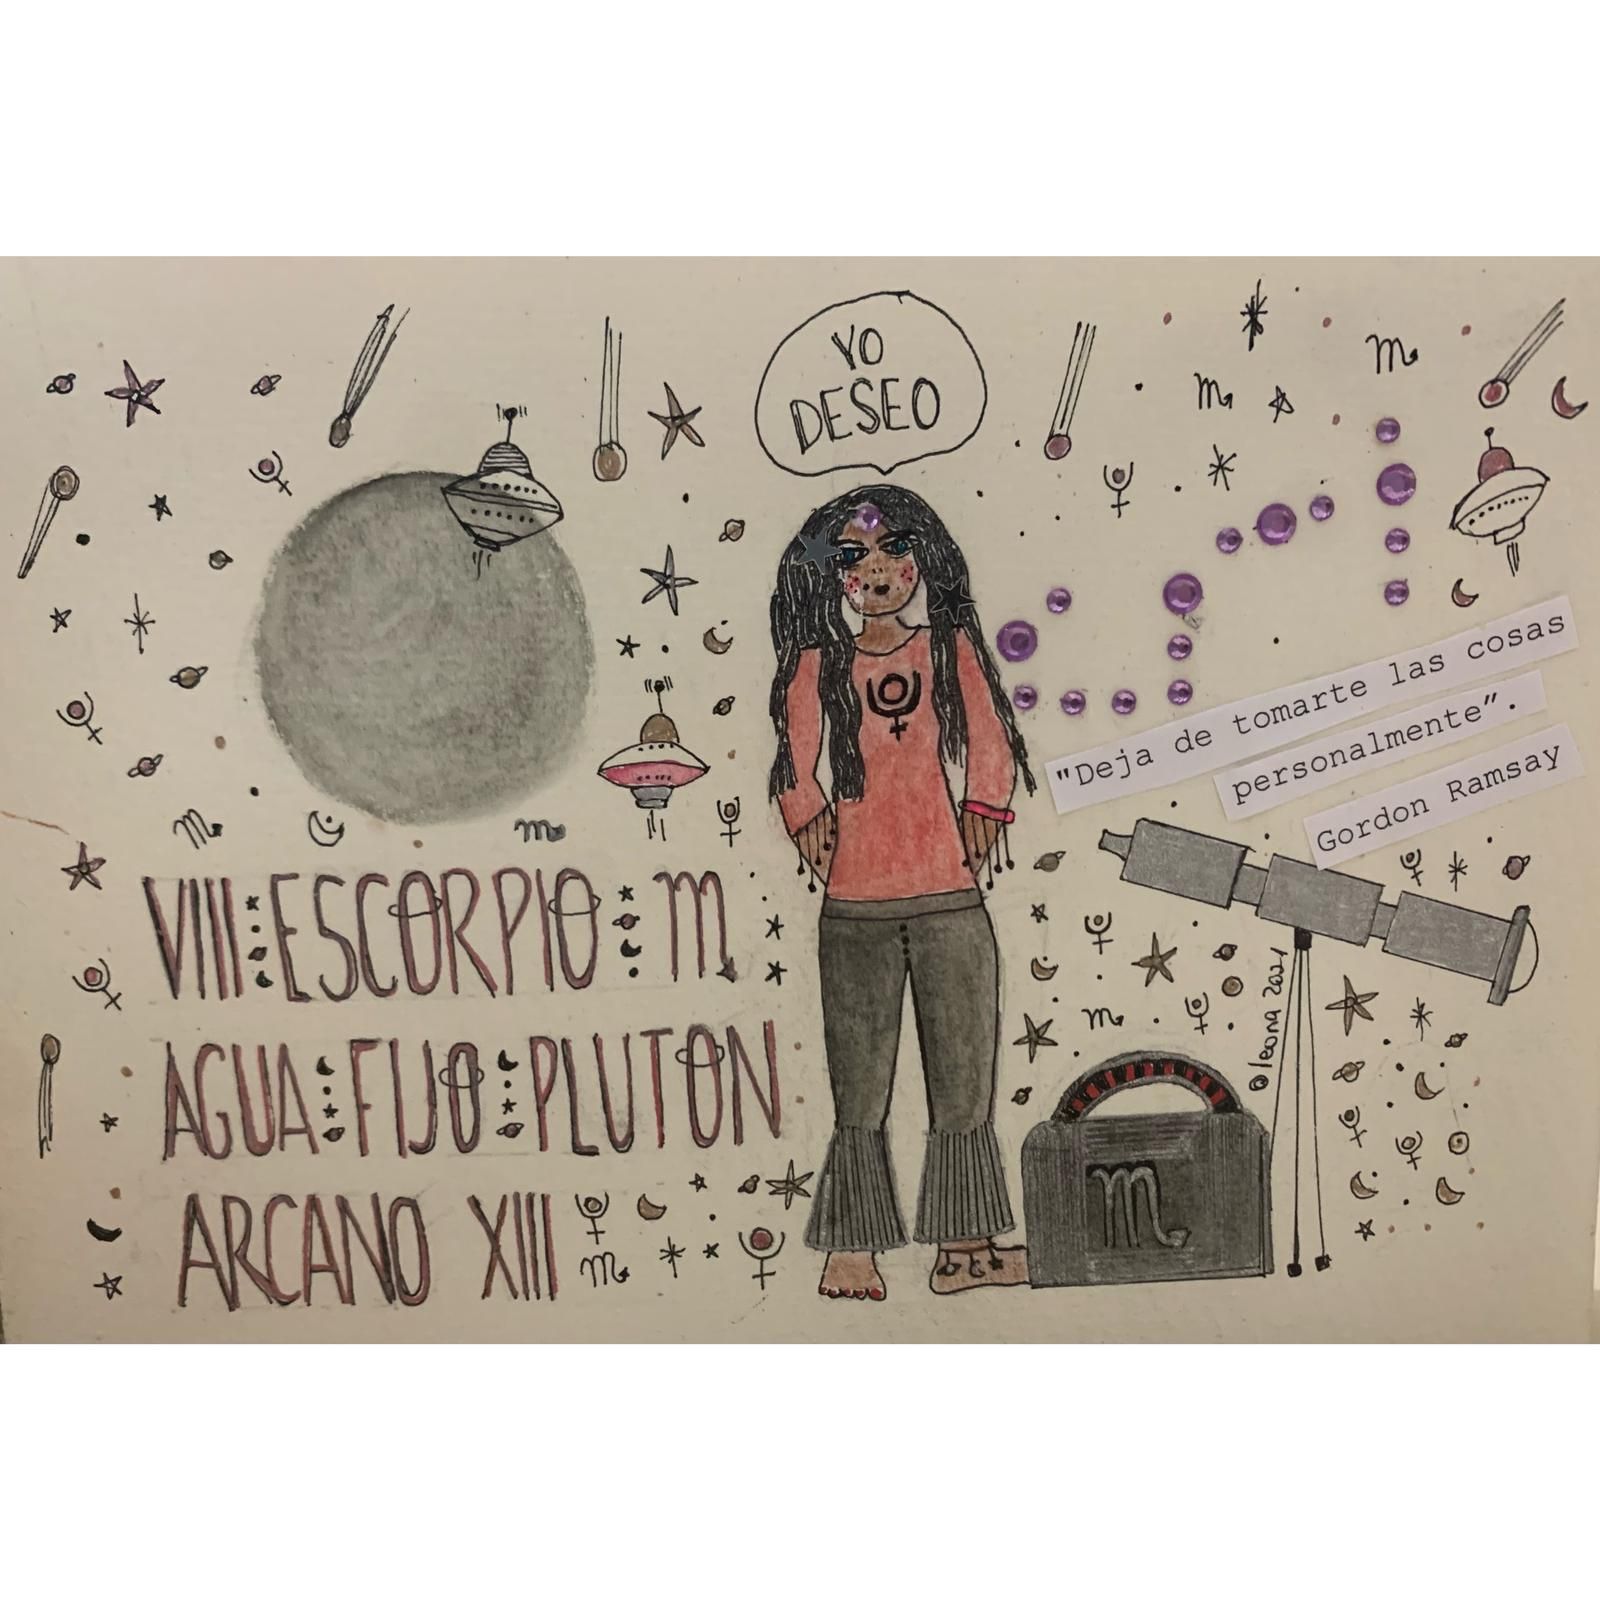 YO
DESEO
"Deja de tomarte las cosas
personalmente".
Gordon Ramsay
VIII ESCORPIO ♏
AGUA FIJO PLUTON
ARCANO XIII
©leona 2021